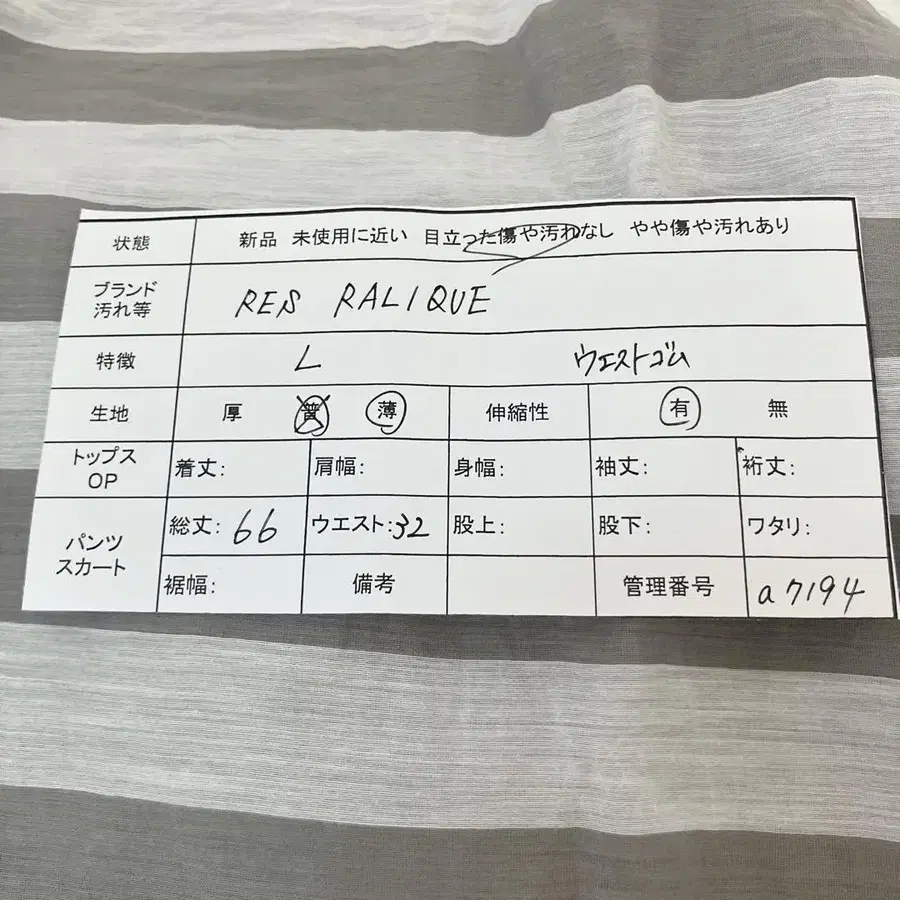 状態 新品 未使用に近い 目立った傷や汚れなし やや傷や汚れあり
ブランド
汚れ等
RES RALIQUE
特徴 L ウエストゴム
生地 厚 普 薄 伸縮性 有 無
トップス
OP
着丈: 肩幅: 身幅: 袖丈: 裄丈:
パンツ
スカート
総丈: 66 ウエスト: 32 股上: 股下: ワタリ:
裾幅: 備考 管理番号 a7194